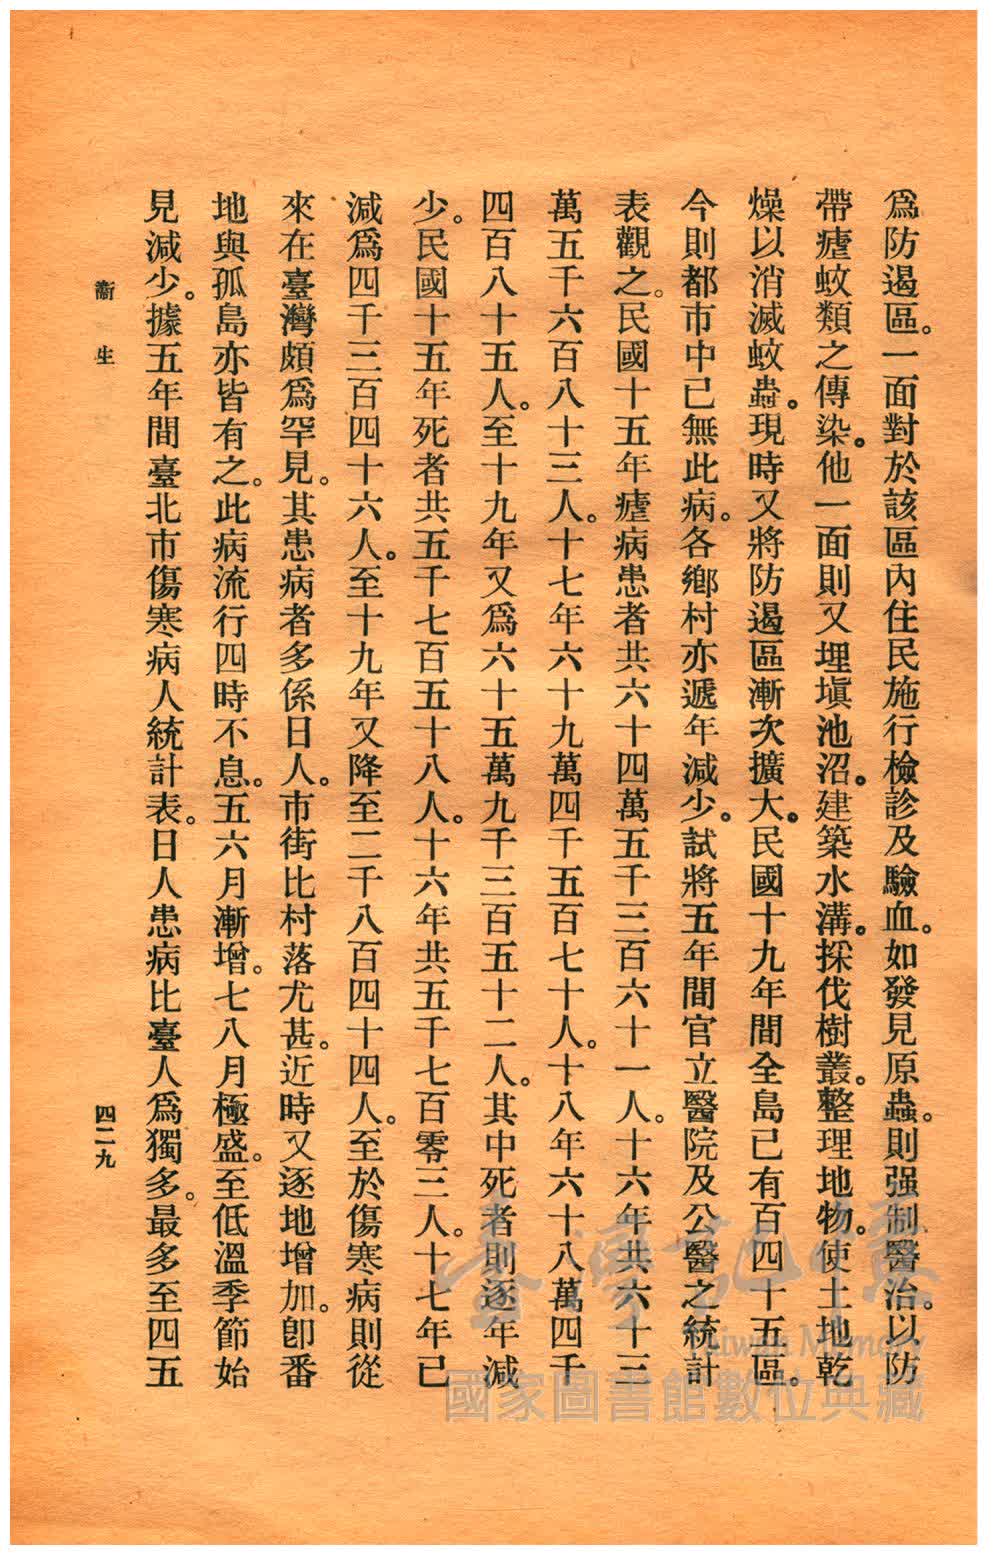 爲防遏區。一面對於該區內住民施行檢診及驗血。如發見原蟲。則强制醫治。以防
帶瘧蚊類之傳染。他一面則又埋塡池沼。建築水溝。採伐樹叢。整理地物。使土地乾
燥以消滅蚊蟲。現時又將防遏區漸次擴大。民國十九年間全島已有百四十五區。
今則都市中已無此病。各鄉村亦遞年減少。試將五年間官立醫院及公醫之統計
表觀之。民國十五年瘧病患者共六十四萬五千三百六十一人。十六年共六十三
萬五千六百八十三人。十七年六十九萬四千五百七十人。十八年六十八萬四千
四百八十五人。至十九年又爲六十五萬九千三百五十二人。其中死者則逐年減
少。民國十五年死者共五千七百五十八人。十六年共五千七百零三人。十七年已
減爲四千三百四十六人。至十九年又降至二千八百四十四人。至於傷寒病則從
來在臺灣頗爲罕見。其患病者多係日人。市街比村落尤甚。近時又逐地增加。卽番
地與孤島亦皆有之。此病流行四時不息。五六月漸增。七八月極盛。至低溫季節始
見減少。據五年間臺北市傷寒病人統計表。日人患病比臺人爲獨多。最多至四五
衞生
四二九
臺灣記憶
Taiwan Memory
國家圖書館數位典藏